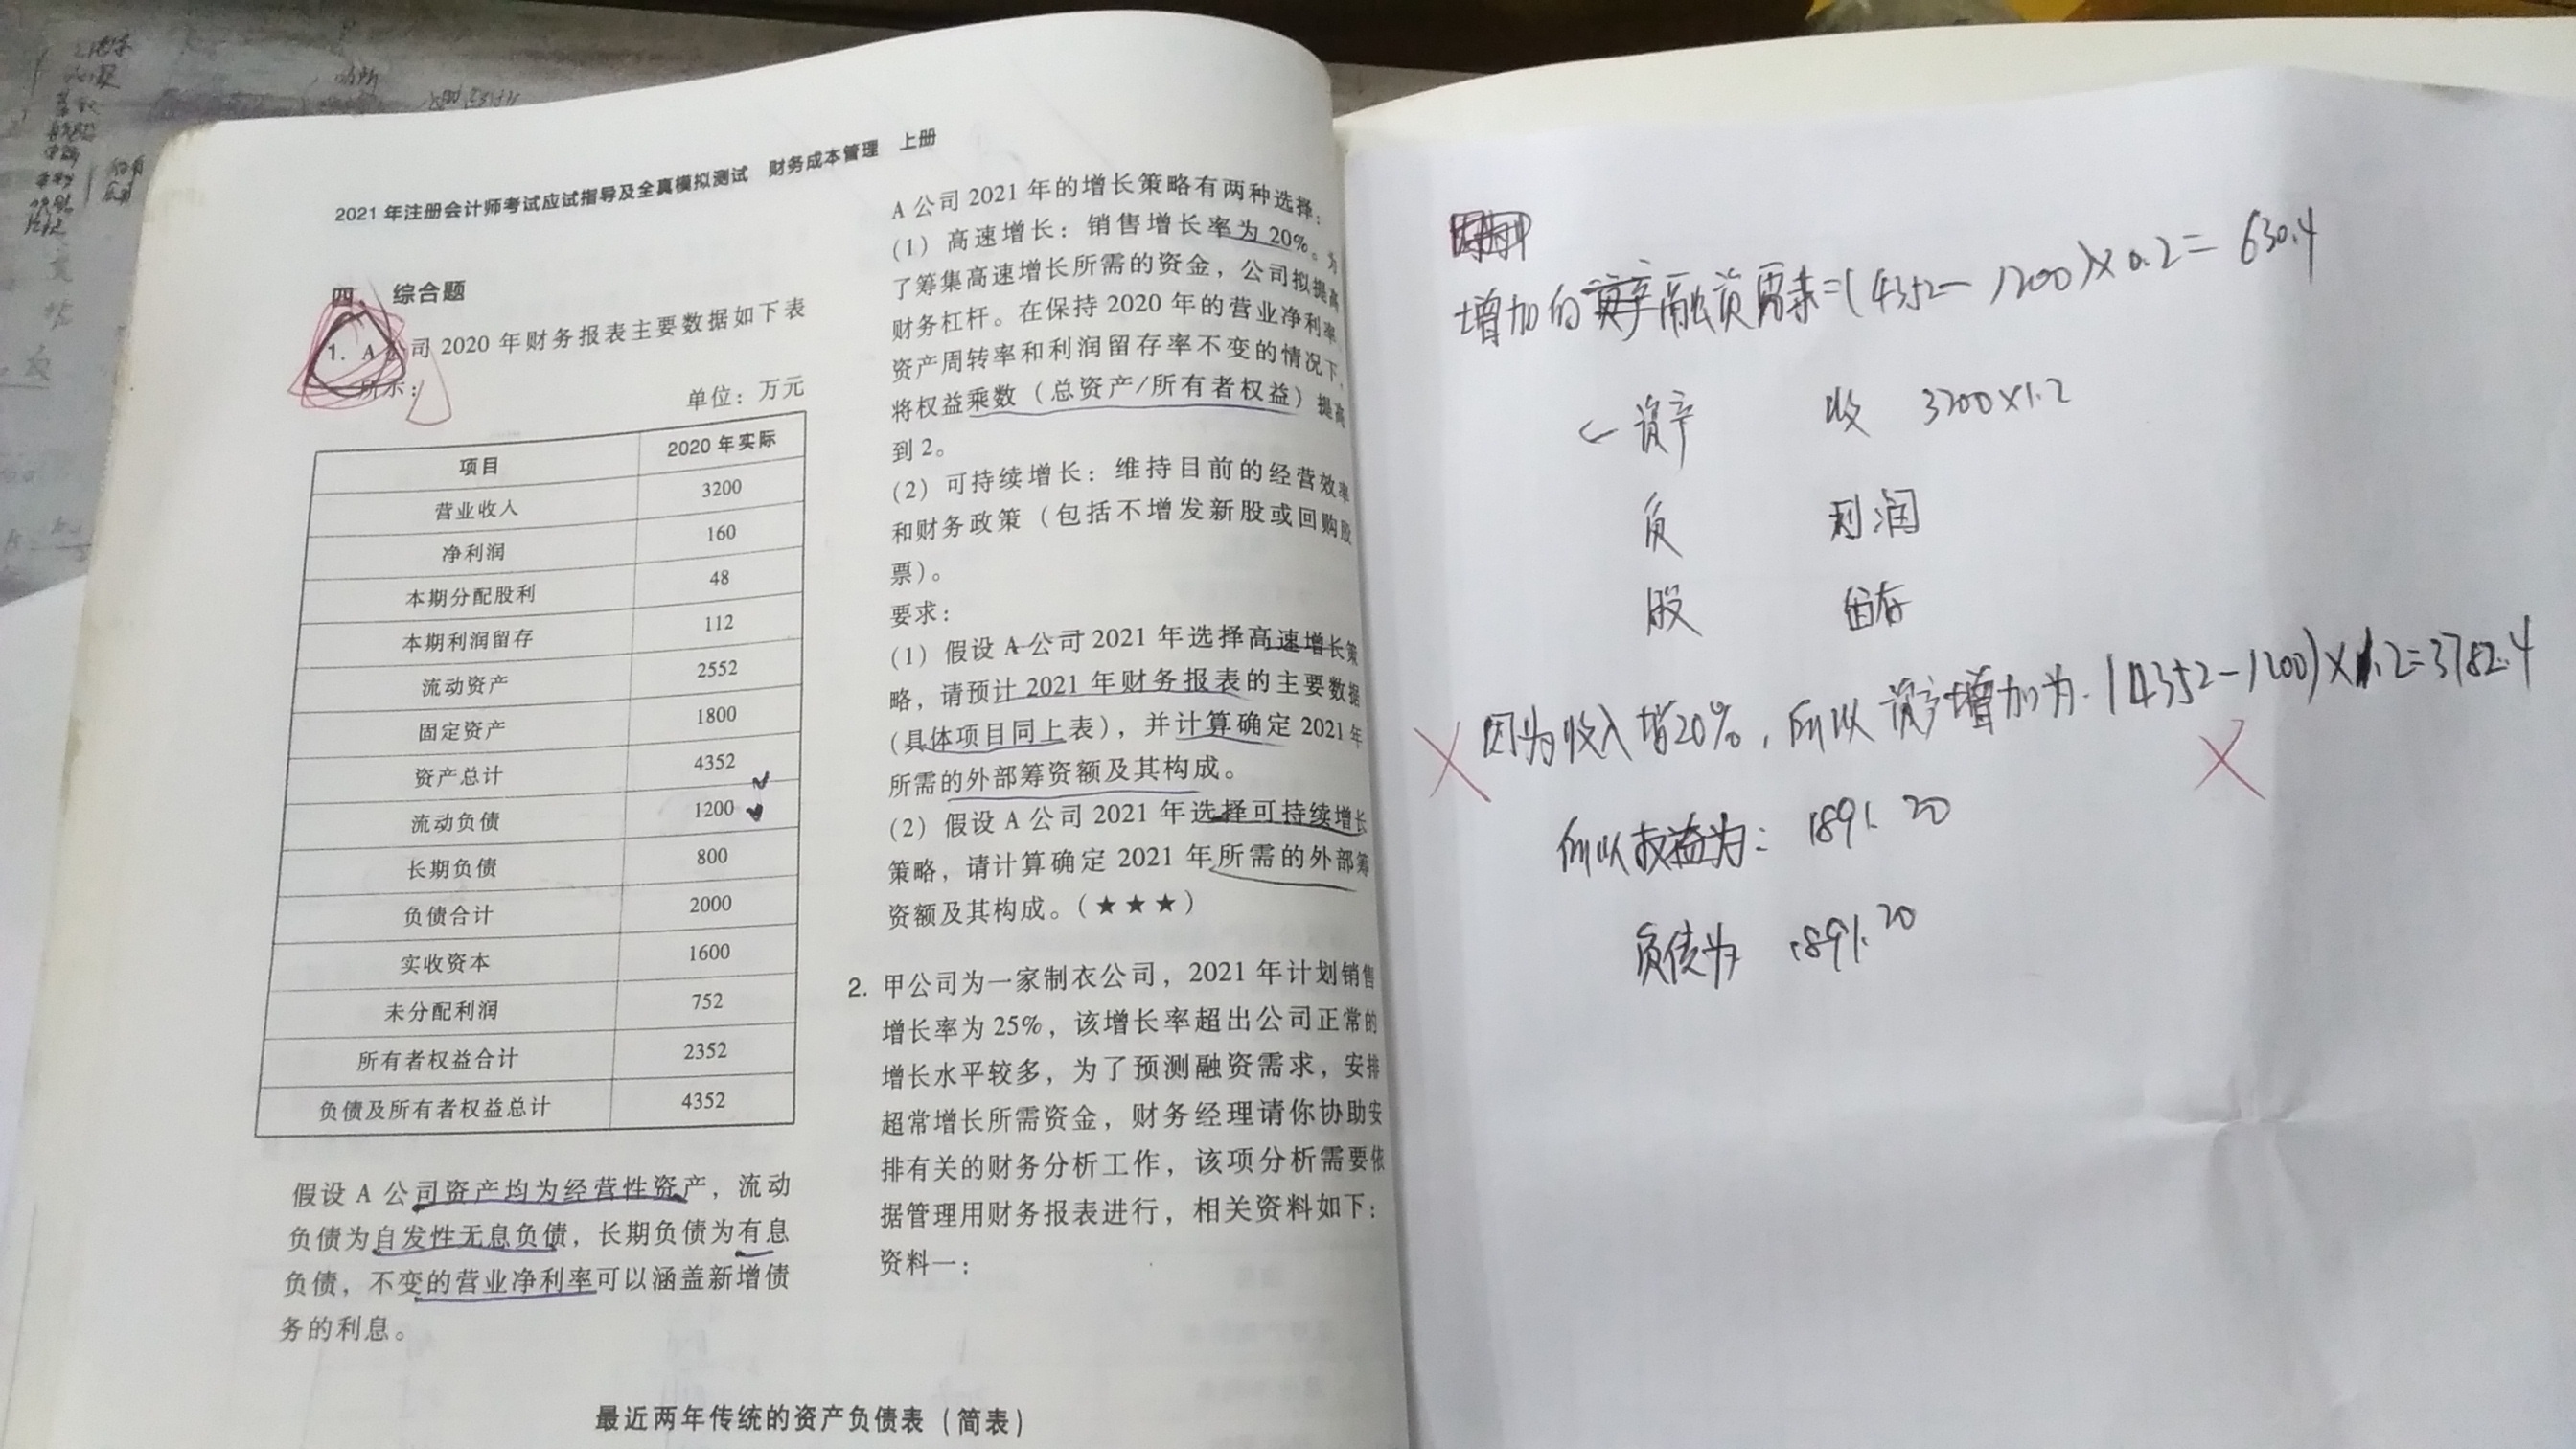 2021年注册会计师考试应试指导及全真模拟测试 财务成本管理 上册
四、综合题
1. A公司2020年财务报表主要数据如下表
所示：
单位：万元
项目 2020年实际
营业收入 3200
净利润 160
本期分配股利 48
本期利润留存 112
流动资产 2552
固定资产 1800
资产总计 4352
流动负债 1200
长期负债 800
负债合计 2000
实收资本 1600
未分配利润 752
所有者权益合计 2352
负债及所有者权益总计 4352
假设A公司资产均为经营性资产，流动
负债为自发性无息负债，长期负债为有息
负债，不变的营业净利率可以涵盖新增债
务的利息。
A公司2021年的增长策略有两种选择：
(1) 高速增长：销售增长率为20%。为
了筹集高速增长所需的资金，公司拟提高
财务杠杆。在保持2020年的营业净利率、
资产周转率和利润留存率不变的情况下，
将权益乘数（总资产/所有者权益）提高
到2。
(2) 可持续增长：维持目前的经营效率
和财务政策（包括不增发新股或回购股
票）。
要求：
(1) 假设A公司2021年选择高速增长策
略，请预计2021年财务报表的主要数据
（具体项目同上表），并计算确定2021年
所需的外部筹资额及其构成。
(2) 假设A公司2021年选择可持续增长
策略，请计算确定2021年所需的外部筹
资额及其构成。（★★★）
2. 甲公司为一家制衣公司，2021年计划销售
增长率为25%，该增长率超出公司正常的
增长水平较多，为了预测融资需求，安排
超常增长所需资金，财务经理请你协助安
排有关的财务分析工作，该项分析需要依
据管理用财务报表进行，相关资料如下：
资料一：
最近两年传统的资产负债表（简表）
增加的融资需求=(4352-1200)×0.2=630.4
资产 收 3200×1.2
负 利润
股 留存
因为收入增20%，所以资产增加为.(4352-1200)×1.2=3782.4
所以权益为：1891.20
负债为 1891.20